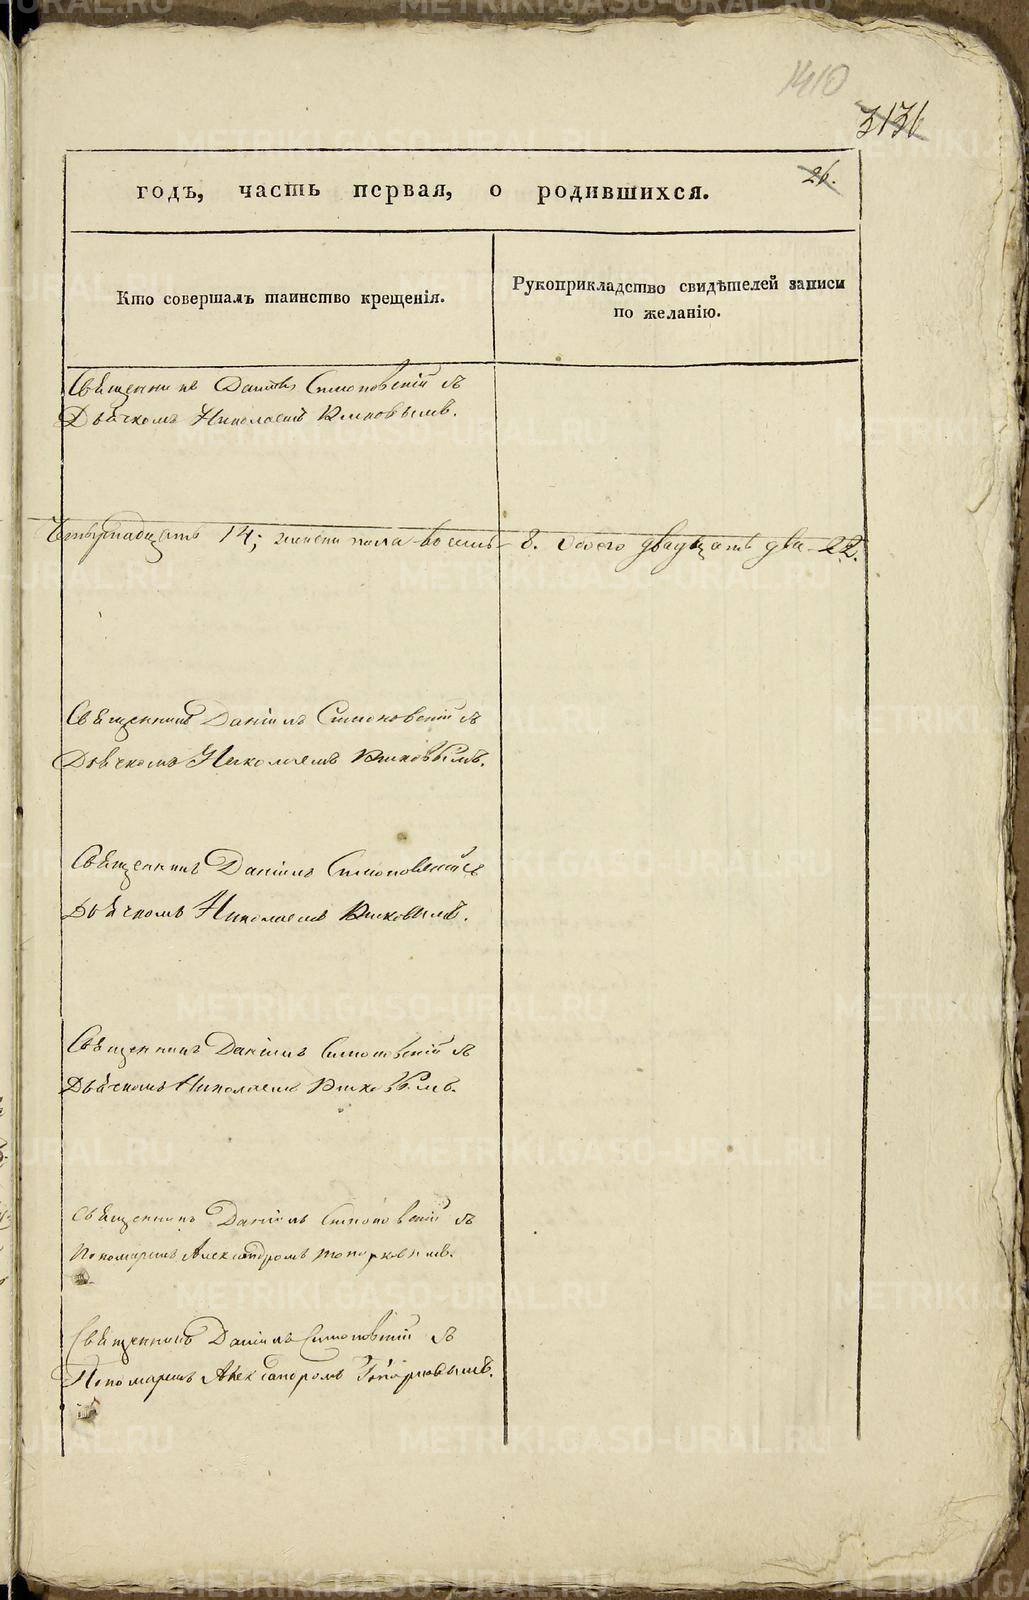 1410
3136
26.
годъ, часть первая, о родившихся.
Кто совершалъ таинство крещенія.
Рукоприкладство свидѣтелей записи
по желанію.
Священникъ Даніилъ Симоновскій съ
Дьячкомъ Николаемъ
Четырнадцать 14; женска пола восемь 8. Обоего двадцать два 22.
Священникъ Даніилъ Симоновскій съ
Дьячкомъ Николаемъ
Священникъ Даніилъ Симоновскій съ
Дьячкомъ Николаемъ
Священникъ Даніилъ Симоновскій съ
Дьячкомъ Николаемъ
Священникъ Даніилъ Симоновскій съ
Пономаремъ Александромъ Топорковымъ.
Священникъ Даніилъ Симоновскій съ
Пономаремъ Александромъ Топорковымъ.
METRIKI.GASO-URAL.RU